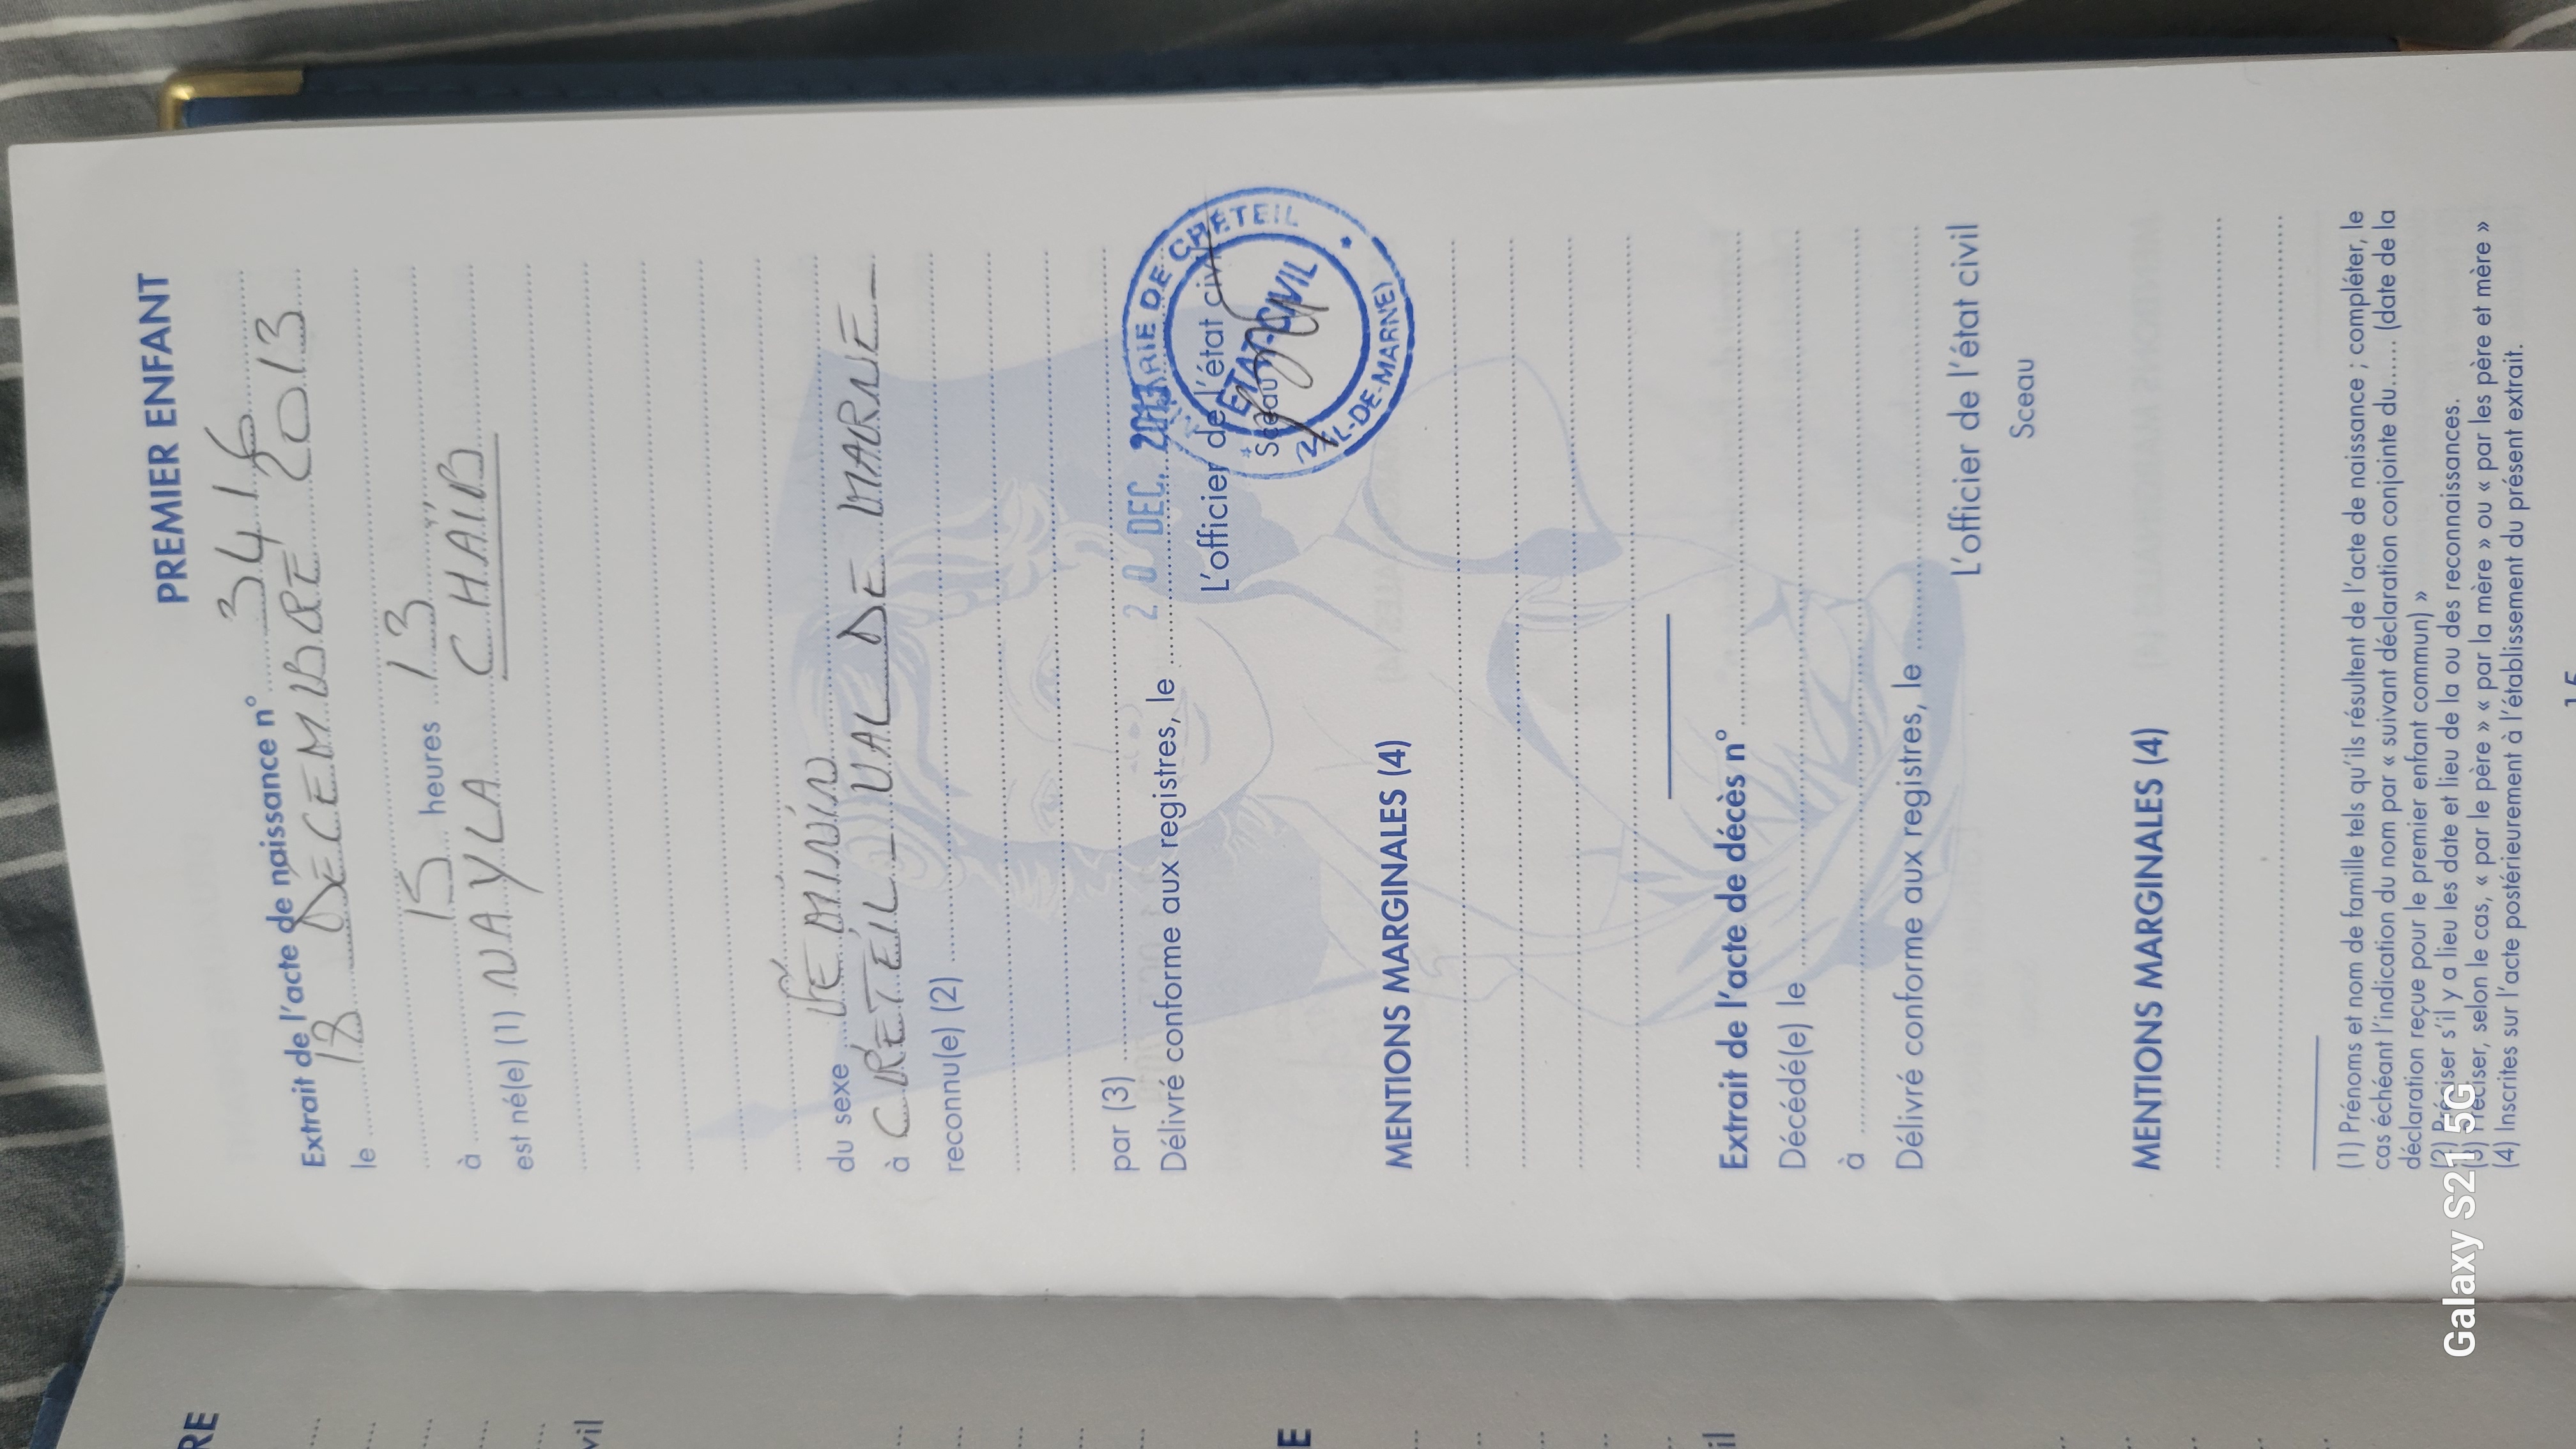 PREMIER ENFANT
Extrait de l'acte de naissance n° 3416
le 18 DÉCEMBRE 2013
à 15 heures 13
est né(e) (1) NAYLA CHAÏB
du sexe FÉMININ
à CRÉTEIL _ VAL DE MARNE _
reconnu(e) (2)
par (3)
Délivré conforme aux registres, le 20 DEC. 2013
L'officier de l'état civil
Sceau
MAIRIE DE CRÉTEIL
ÉTAT-CIVIL
(VAL-DE-MARNE)
MENTIONS MARGINALES (4)
Extrait de l'acte de décès n°
Décédé(e) le
à
Délivré conforme aux registres, le
L'officier de l'état civil
Sceau
MENTIONS MARGINALES (4)
(1) Prénoms et nom de famille tels qu'ils résultent de l'acte de naissance ; compléter, le
cas échéant l'indication du nom par « suivant déclaration conjointe du...... (date de la
déclaration reçue pour le premier enfant commun) »
(2) Préciser s'il y a lieu les date et lieu de la ou des reconnaissances.
(3) Préciser, selon le cas, « par le père » « par la mère » ou « par les père et mère »
(4) Inscrites sur l'acte postérieurement à l'établissement du présent extrait.
15
RE
vil
E
il
Galaxy S21 5G